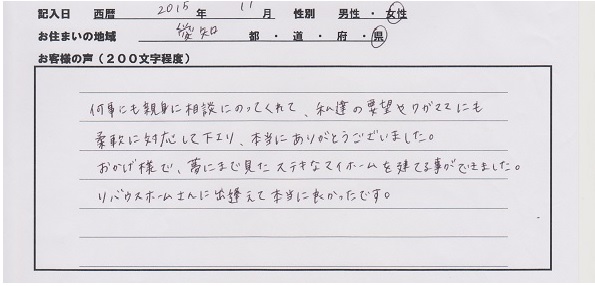 記入日 西暦 2015 年 11 月 性別 男性 ・ 女性
お住まいの地域 愛知 都 ・ 道 ・ 府 ・ 県
お客様の声（200文字程度）
何事にも親身に相談にのってくれて、私達の要望やワガママにも
柔軟に対応して下エリ、本当にありがとうございました。
おかげ様で、夢にまで見たステキなマイホームを建てる事ができました。
リバウスホームさんに出逢えて本当に良かったです。